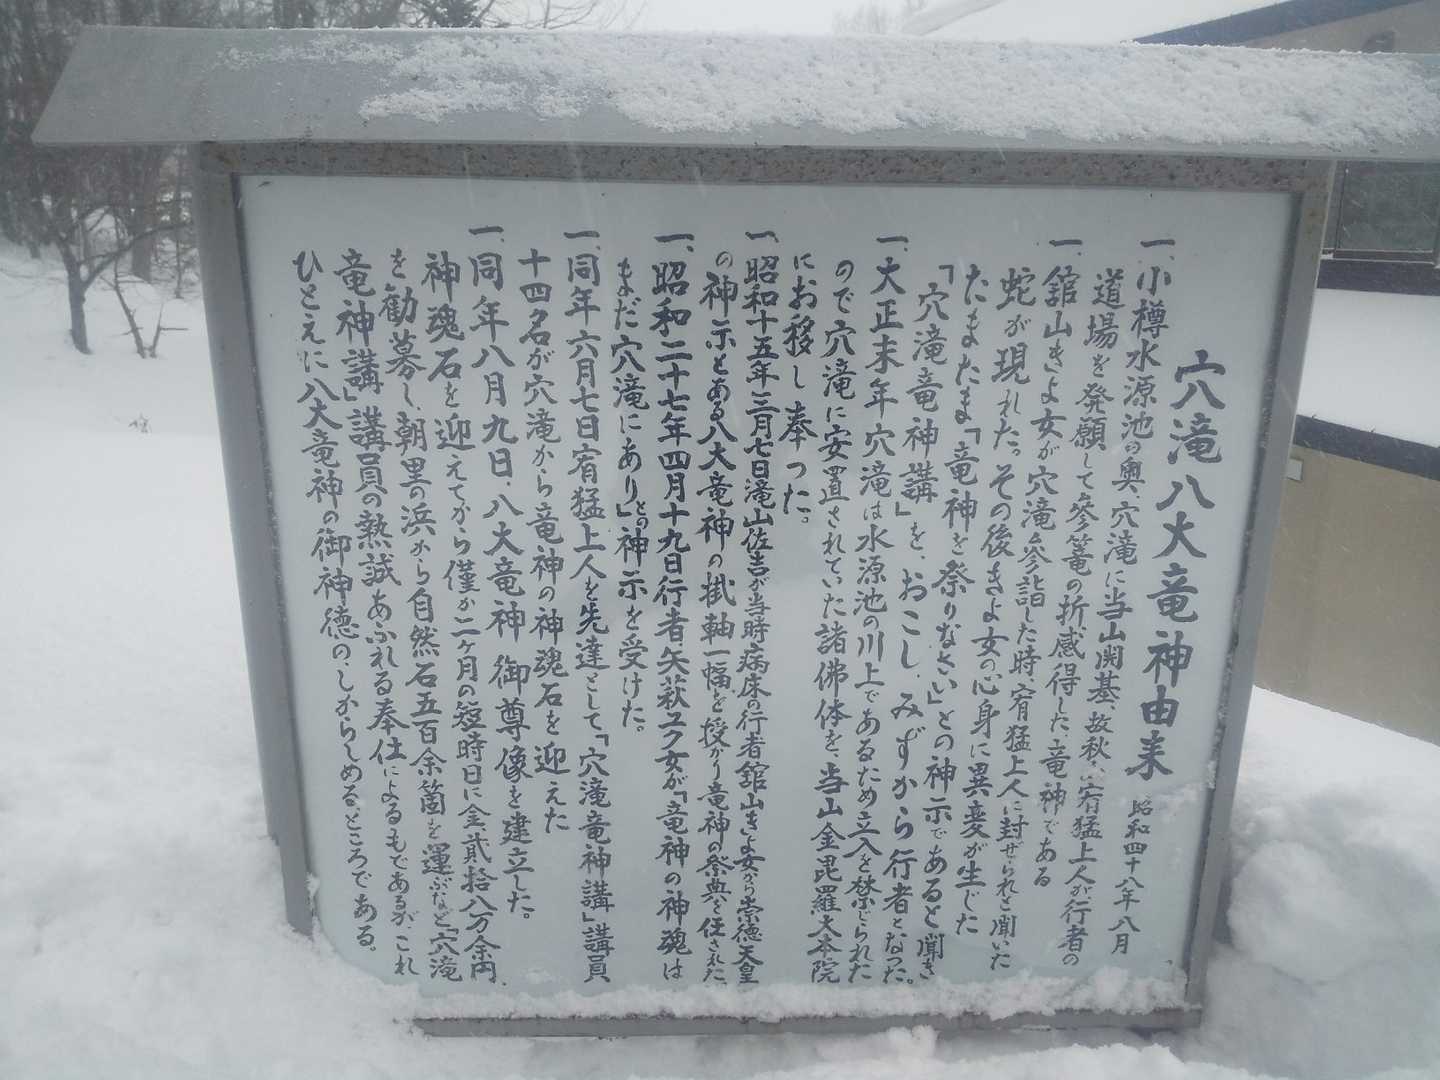 穴滝八大竜神由来
昭和四十八年八月
一、小樽水源池の奥、穴滝に当山開基、故秋山宥猛上人が行者の
道場を発願して参篭の折感得した、竜神である
一、舘山きよ女が穴滝参詣した時、宥猛上人に封ぜられと聞いた
蛇が現れた。その後きよ女の心身に異変が生じた
たまたま「竜神を祭りなさい」との神示であると聞き
「穴滝竜神講」を、おこし、みずから行者となった。
一、大正末年穴滝は水源池の川上であるため立入を禁じられた
ので穴滝に安置されていた諸佛体を、当山金毘羅大本院
にお移し奉った。
一、昭和十五年三月七日滝山佐吉が当時病床の行者舘山きよ女から崇徳天皇
の神示とある八大竜神の掛軸一幅を授かり竜神の祭典を任された、
一、昭和二十七年四月十九日行者、矢萩ユク女が「竜神の神魂は
まだ穴滝にあり」との神示を受けた。
一、同年六月七日宥猛上人を先達として「穴滝竜神講」講員
十四名が穴滝から竜神の神魂石を迎えた
一、同年八月九日、八大竜神御尊像を建立した。
神魂石を迎えてから僅か二ヶ月の短時日に金貳拾八万余円、
を勧募し、朝里の浜から自然石五百余箇を運ぶなど「穴滝
竜神講」講員の熱誠あふれる奉仕によるものであるが、これ
ひとえに八大竜神の御神徳の、しからしめる、ところである。